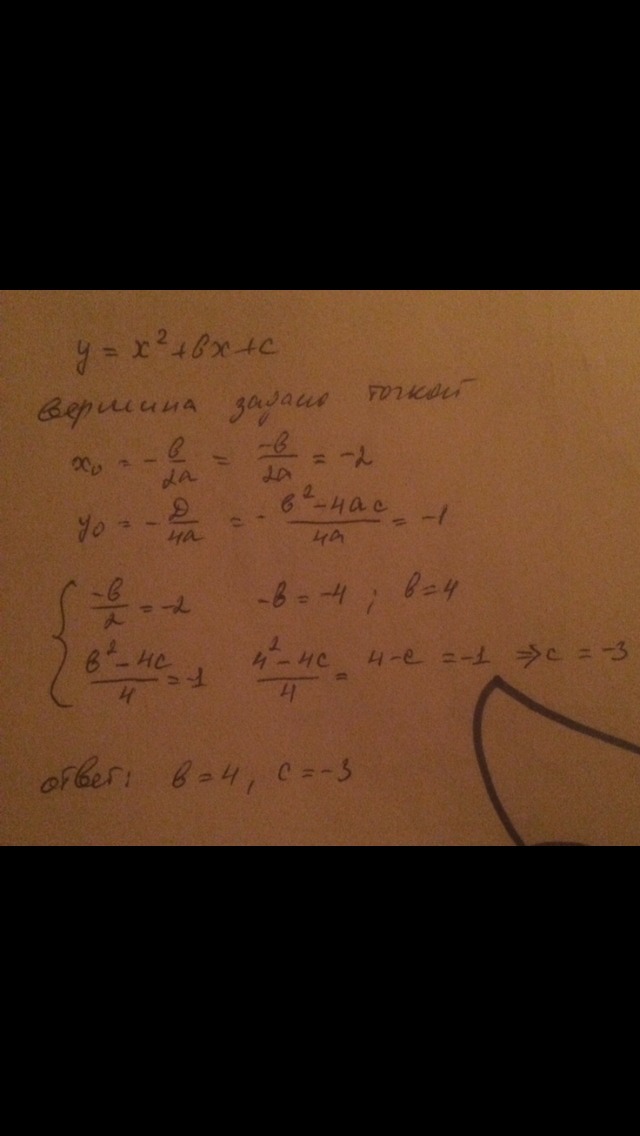 y = x² + вx + c
вершина задано точкой
x₀ = -в/2a = -в/2a = -2
y₀ = -D/4a = - в² - 4ac/4a = -1
{ -в/2 = -2 -в = -4 ; в = 4
в² - 4c/4 = -1 4² - 4c/4 = 4 - c = -1 ⇒ c = -3
ответ: в = 4, c = -3